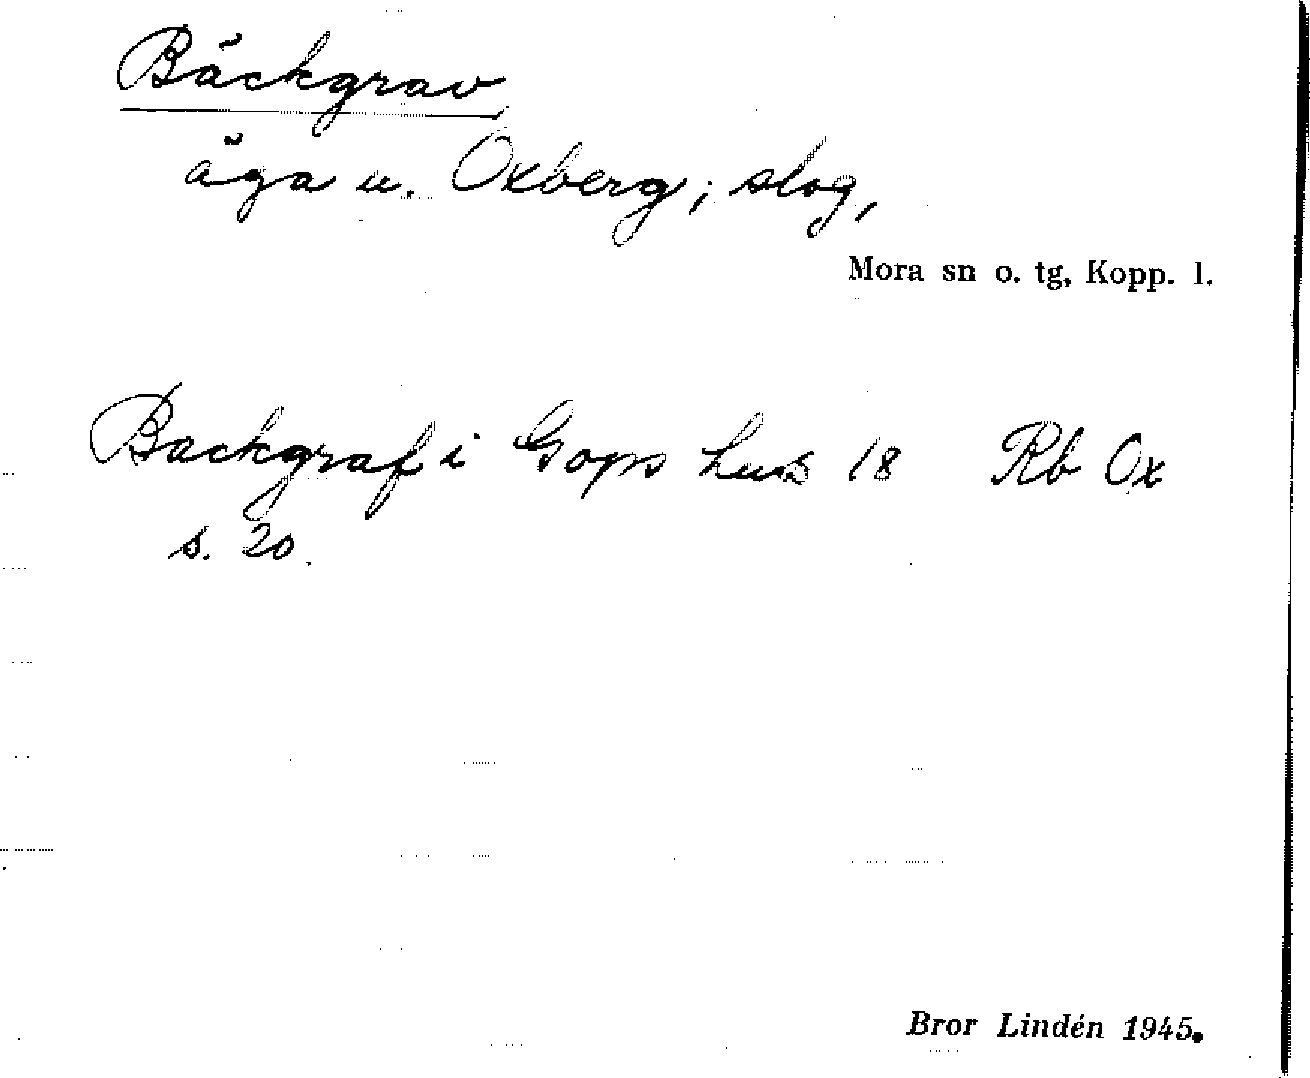 Bäckgrav
äga u. Oxberg; slog,
Mora sn o. tg, Kopp. l.
Backgraf i Gops 18 Rb Ox
s. 20.
Bror Lindén 1945.